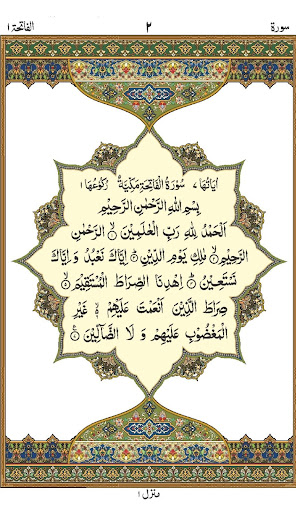 سورة ٢ الفاتحة ١
اٰيَاتُهَا ٧ سُوْرَةُ الْفَاتِحَةِ مَكِّيَّةٌ رُكُوْعُهَا ١
بِسْمِ اللّٰهِ الرَّحْمٰنِ الرَّحِيْمِ
اَلْحَمْدُ لِلّٰهِ رَبِّ الْعٰلَمِيْنَ ۝١ الرَّحْمٰنِ
الرَّحِيْمِ ۝٢ مٰلِكِ يَوْمِ الدِّيْنِ ۝٣ اِيَّاكَ نَعْبُدُ وَ اِيَّاكَ
نَسْتَعِيْنُ ۝٤ اِهْدِنَا الصِّرَاطَ الْمُسْتَقِيْمَ ۝٥
صِرَاطَ الَّذِيْنَ اَنْعَمْتَ عَلَيْهِمْ ۝٦ غَيْرِ
الْمَغْضُوْبِ عَلَيْهِمْ وَ لَا الضَّآلِّيْنَ ۝٧
منزل ١